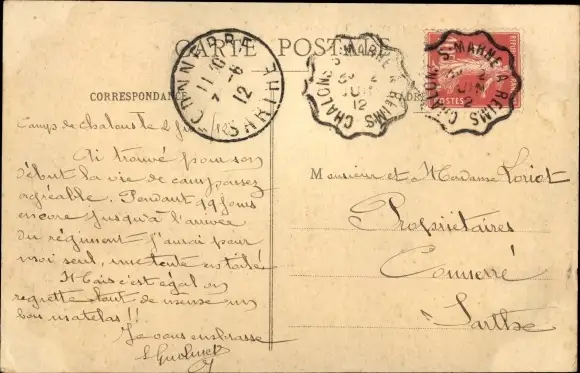 CARTE POSTALE
CORRESPONDANCE
CONNERRÉ
11 10
7 -6
12
SARTHE
CHALONS S. MARNE A REIMS
2
JUIN
12
CHALONS S. MARNE A REIMS
2
JUIN
12
POSTES
Camp de Chalons le 2
Ai trouvé pour son
début la vie de camp assez
agréable. Pendant 19 jours
encore jusqu'à l'arrivée
du régiment j'aurai pour
moi seul, une tente entoilée
Mais c'est égal on
regrette tout de meme un
bon matelas !!
Je vous embrasse
Monsieur et Madame Loriot
Propriétaires
Connerré
Sarthe